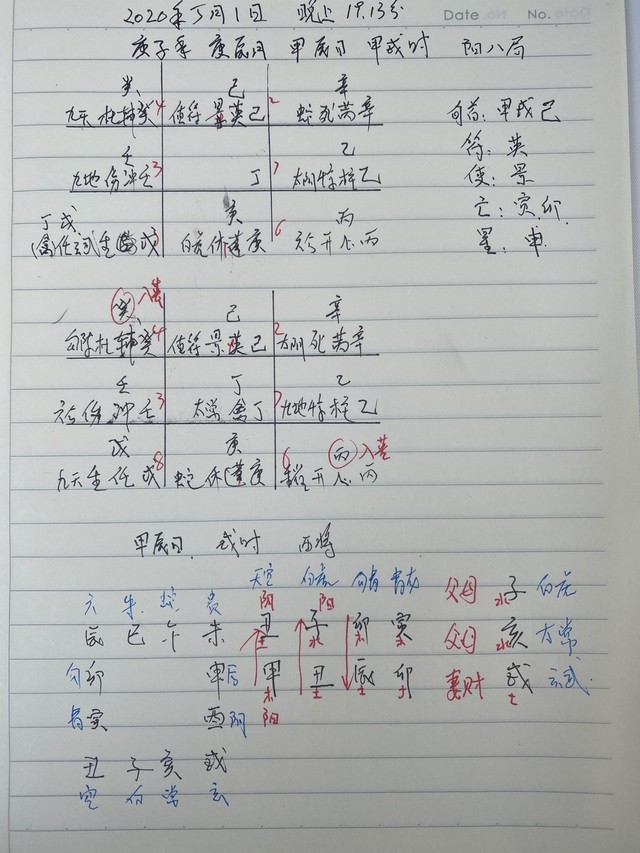 2020年5月1日 晚上 19.13分
Date No.
庚子年 庚辰月 甲辰日 甲戌时 阳八局
癸 己 辛
九天杜辅癸4 值符景英己 2蛇死芮辛 旬首：甲戌己
壬 乙 符：英
九地伤冲壬3 丁 7太阴惊柱乙 使：景
丁戌 庚 丙 亡：寅卯
白虎休蓬庚 6 开心丙 星：申
癸 入墓 己 辛
勾陈杜辅癸4 值符景英己 2太阴死芮辛
壬 丁 乙
伤冲壬3 太常禽丁 7九地惊柱乙
戊 庚 丙 入墓
九天生任戊8 蛇休蓬庚 6 开心丙
甲辰日 戌时 酉将
天空 白虎 勾 青龙
六 朱 蛇 贵 阴 阳 父母 子水 白虎
辰 巳 午 未 丑土 子水 卯木 寅木 父母 亥水 太常
勾卯 申后 甲木 丑土 辰土 卯 妻财 戌土 玄武
青寅 酉阴 阳
丑 子 亥 戌
空 白 常 玄